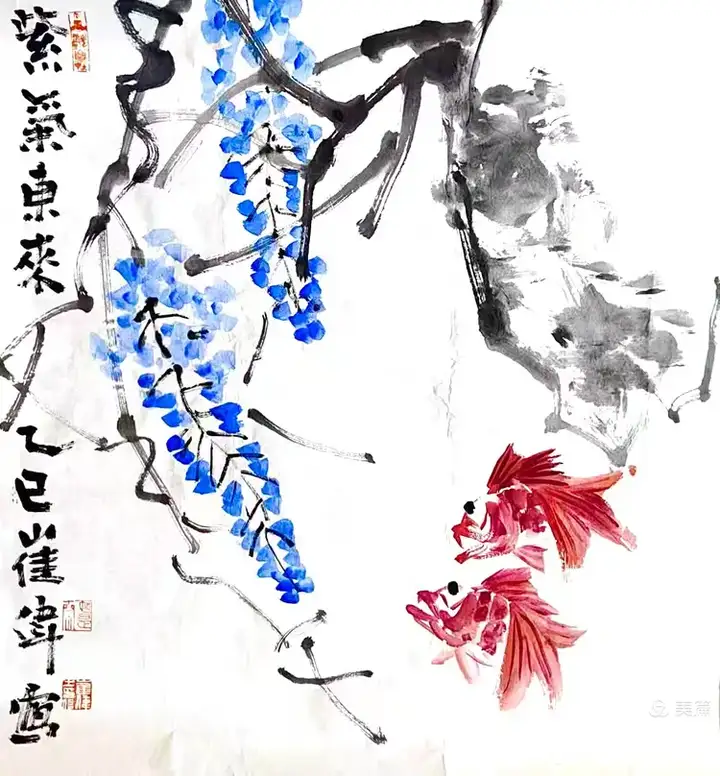 紫氣東來
乙巳崔偉畫
美篇